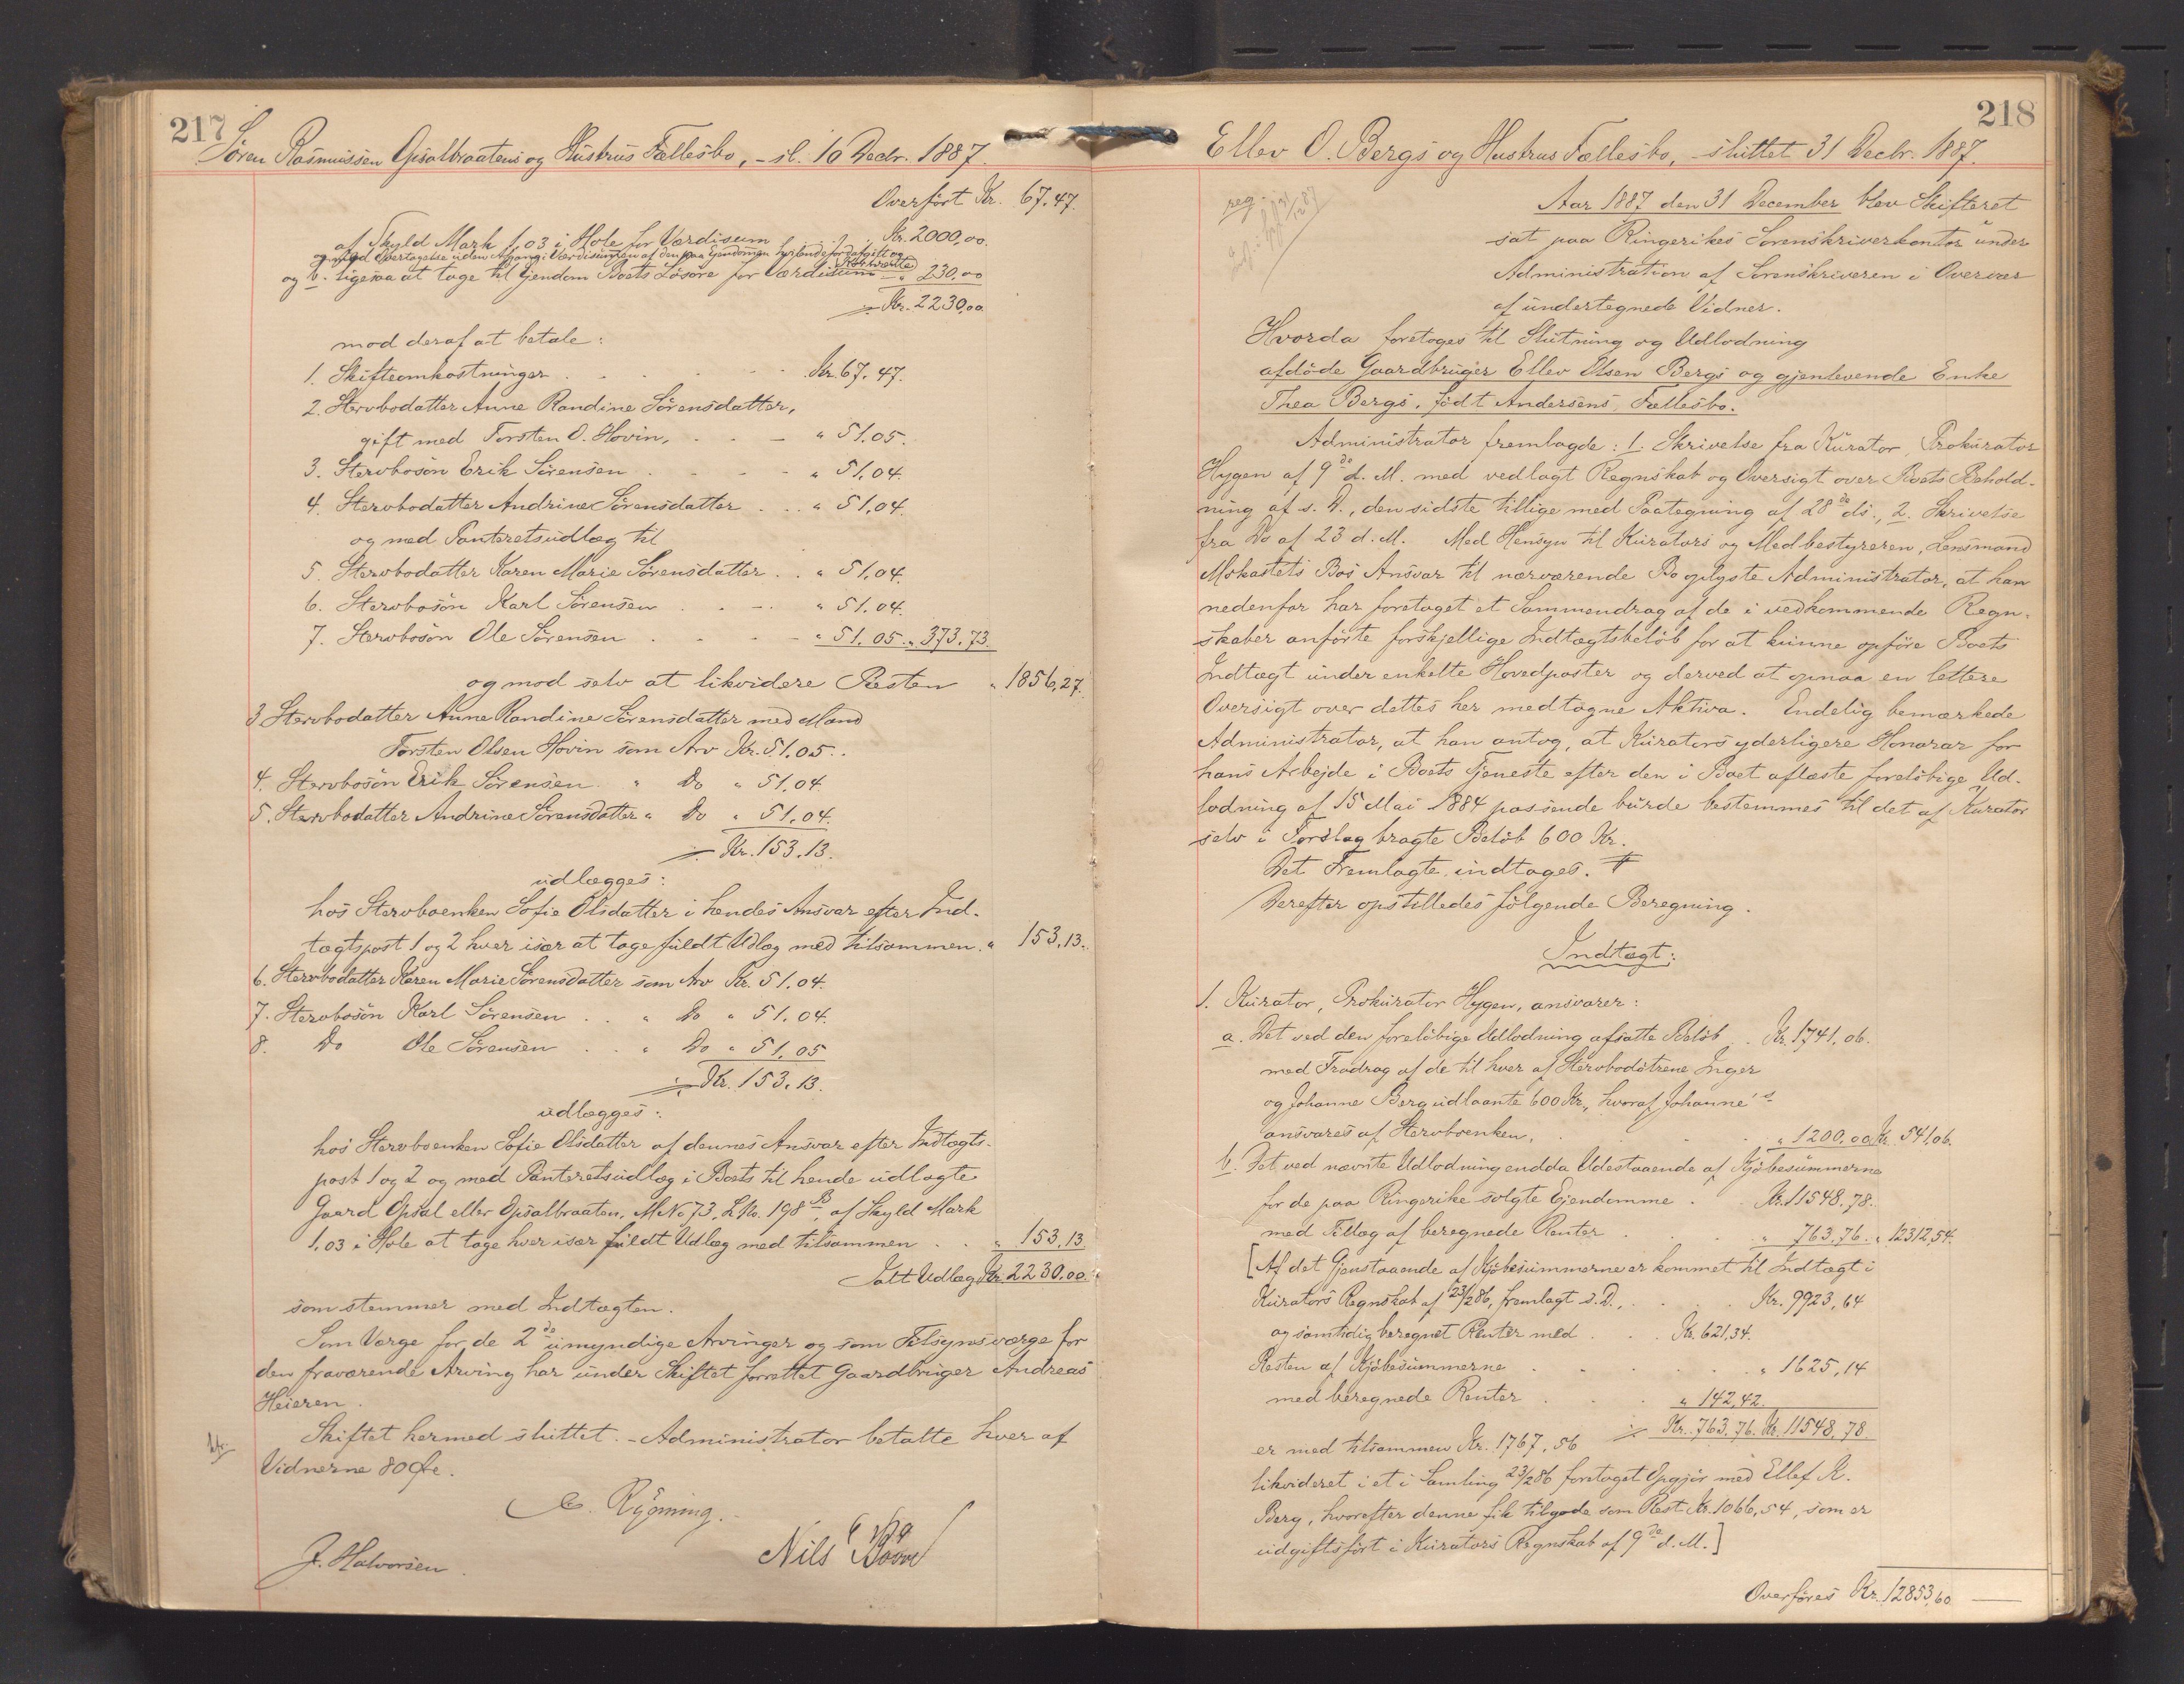 217
Sören Rasmussen Opsalbraatens og Hustrus Fællesbo, - sl. 10 Decbr. 1887.
Overfört Kr. 67.47.
af Skyld Mark 1,03 i Hole for Værdisum . . Kr. 2000,00.
og med Overtagelse uden Afgang i Værdisummen af den paa Ejendommen hvilende fordafgift og
og b. ligesaa at tage til Ejendom Boets Lösöre for Værdisum - " 230,00
Kr. 2230,00.
mod deraf at betale:
1. Skifteomkostninger . . . . . Kr. 67.47.
2. Stervbodatter Anne Randine Sörensdatter,
gift med Torsten O. Hovin, . . - " 51.05.
3. Stervbosön Erik Sörensen . . . - " 51,04.
4. Stervbodatter Andrine Sörensdatter . . . " 51,04.
og med Panteretsudlæg til
5. Stervbodatter Karen Marie Sörensdatter . . " 51,04.
6. Stervbosön Karl Sörensen . . - . " 51.04.
7. Stervbosön Ole Sörensen . . . - " 51.05. " 373.73.
og mod selv at likvidere Resten " 1856,27.
3 Stervbodatter Anne Randine Sörensdatter med Mand
Torsten Olsen Hovin som Arv Kr. 51.05.
4. Stervbosön Erik Sörensen . " Do " 51.04.
5. Stervbodatter Andrine Sörensdatter " Do " 51.04.
Kr. 153.13.
udlægges:
hos Stervboenken Sofie Olsdatter i hendes Ansvar efter Ind-
tægtspost 1 og 2 hver især at tage fuldt Udlæg med tilsammen . " 153.13.
6. Stervbodatter Karen Marie Sörensdatter som Arv Kr. 51.04.
7. Stervbosön Karl Sörensen . . " Do " 51.04.
8. Do Ole Sörensen . . " Do " 51.05
Kr. 153.13.
udlægges:
hos Stervboenken Sofie Olsdatter af dennes Ansvar efter Indtægts-
post 1 og 2 og med Panteretsudlæg i Boets til hende udlagte
Gaard Opsal eller Opsalbraaten, M.No 73, L.No. 198 B, af Skyld Mark
1.03 i Hole at tage hver især fuldt Udlæg med tilsammen . . " 153.13
Ialt Udlæg Kr. 2230.00.
som stemmer med Indtægten.
Som Værge for de 2de umyndige Arvinger og som Tilsynsværge for
den fraværende Arving har under Skiftet forrettet Gaardbruger Andreas
Heieren.
Skiftet hermed sluttet. - Administrator betalte hver af
Vidnerne 80 Öre.
C. Rÿnning.
J. Halvorsen.
Nils
218
Ellev O. Bergs og Hustrus Fællesbo, - sluttet 31 Decbr. 1887.
reg.
Aar 1887 den 31 December blev Skifteret
sat paa Ringerikes Sorenskriverkontor under
Administration af Sorenskriveren i Overvær
af undertegnede Vidner.
Hvorda foretoges til Slutning og Udlodning
afdöde Gaardbruger Ellev Olsen Bergs og gjenlevende Enke
Thea Bergs, födt Andersens, Fællesbo.
Administrator fremlagde: 1. Skrivelse fra Kurator, Prokurator
Hygen af 9de d. M. med vedlagt Regnskab og Oversigt over Boets Behold-
ning af s. D., den sidste tillige med Paategning af 28de ds., 2. Skrivelse
fra Do af 23 d. M. Med Hensyn til Kurators og Medbestyreren, Lensmand
Mokastets Bos Ansvar til nærværende Bo oplyste Administrator, at han
nedenfor har foretaget et Sammendrag af de i vedkommende Regn-
skaber anförte forskjellige Indtægtsbelöb for at kunne opföre Boets
Indtægt under enkelte Hovedposter og derved at opnaa en lettere
Oversigt over dettes her medtagne Aktiva. Endelig bemærkede
Administrator, at han antog, at Kurators yderligere Honorar for
hans Arbejde i Boets Tjeneste efter den i Boet aflæste forelöbige Ud-
lodning af 15 Mai 1884 passende burde bestemmes til det af Kurator
selv i Forslag bragte Belöb 600 Kr.
Det Fremlagte indtages.
Derefter opstilledes fölgende Beregning.
Indtægt:
1. Kurator, Prokurator Hygen, ansvarer:
a. Det ved den forelöbige Udlodning afsatte Belöb . Kr. 1741,06.
med Fradrag af de til hver af Stervbodötrene Inger
og Johanne Berg udlaante 600 Kr., hvoraf Johanne's
ansvares af Stervboenken, . . . . " 1200,00 Kr. 541,06.
b. Det ved nævnte Udlodning endda Udestaaende af Kjöbesummerne
for de paa Ringerike solgte Ejendomme . Kr. 11548.78.
med Tillæg af beregnede Renter . . . " 763.76. " 12312,54.
[Af det Gjenstaaende af Kjöbesummerne er kommet til Indtægt i
Kurators Regnskab af 23/2 86, fremlagt s. D., . . . Kr. 9923,64
og samtidig beregnet Renter med . . . Kr. 621,34.
Resten af Kjöbesummerne . . . . . " 1625,14
med beregnede Renter . . . " 142,42.
Kr. 763.76. Kr. 11548,78.
er med tilsammen Kr. 1767,56
likvideret i et i Samling 23/2 86 foretaget Opgjör med Ellef K.
Berg, hvorefter denne fik tilgode som Rest Kr. 1066,54, som er
udgiftsfört i Kurators Regnskab af 9de d. M.]
Overföres Kr. 12853,60